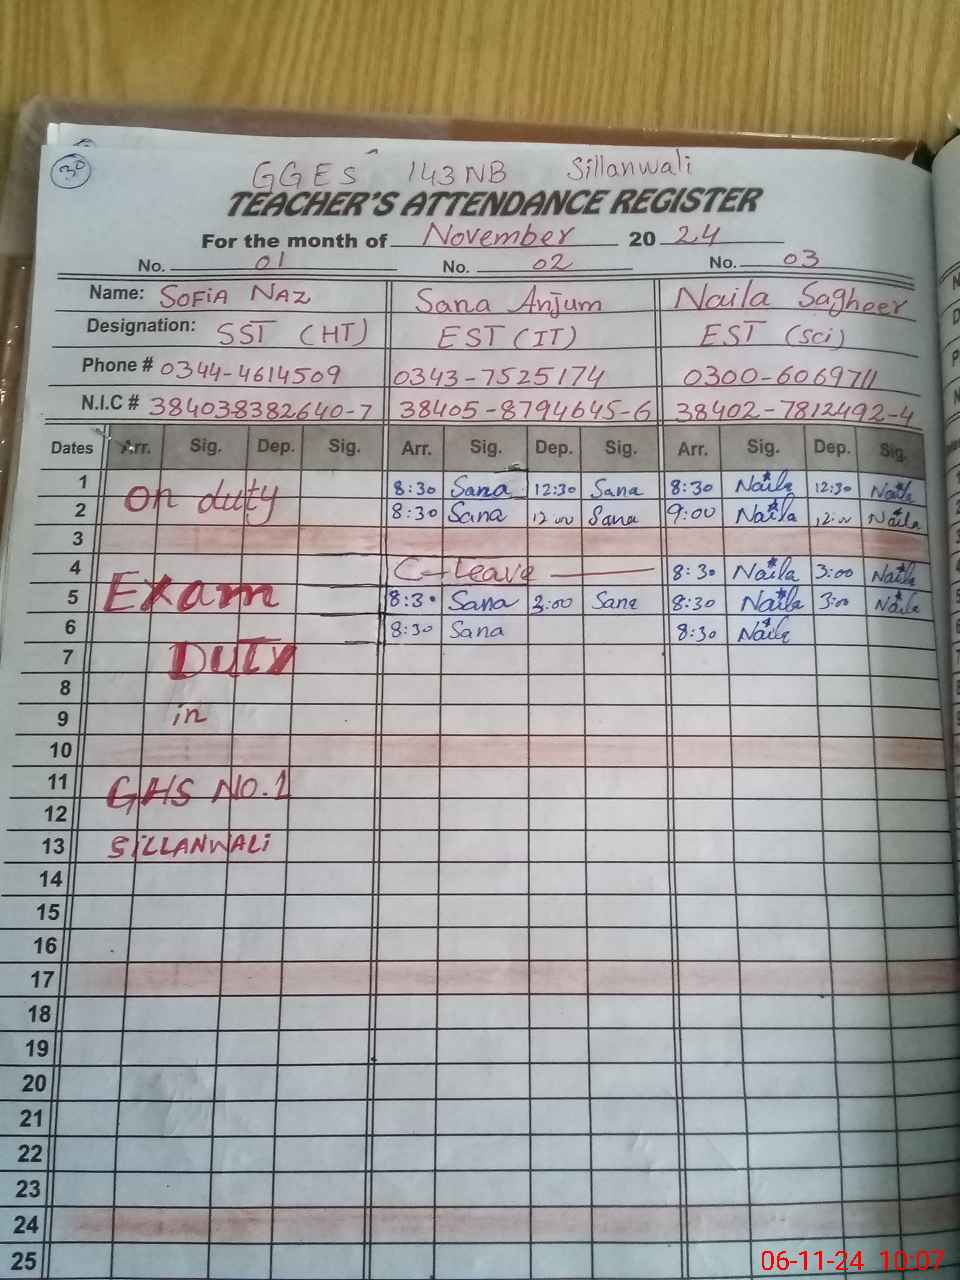 30
GGES 143NB Sillanwali
TEACHER'S ATTENDANCE REGISTER
For the month of November 2024
No. 01 No. 02 No. 03
Name: SOFIA NAZ Sana Anjum Naila Sagheer
Designation: SST (HT) EST (IT) EST (Sci)
Phone # 0344-4614509 0343-7525174 0300-6069711
N.I.C # 384038382640-7 38405-8794645-6 38402-7812492-4
Dates Arr. Sig. Dep. Sig. Arr. Sig. Dep. Sig. Arr. Sig. Dep. Sig.
1 on duty 8:30 Sana 12:30 Sana 8:30 Naila 12:30 Naila
2 8:30 Sana 12:00 Sana 9:00 Naila 12:00 Naila
3
4 C-Leave 8:30 Naila 3:00 Naila
5 Exam 8:30 Sana 3:00 Sana 8:30 Naila 3:00 Naila
6 8:30 Sana 8:30 Naila
7 DUTY
8
9 in
10
11 GHS NO.1
12
13 SILLANWALI
14
15
16
17
18
19
20
21
22
23
24
25
06-11-24 10:07